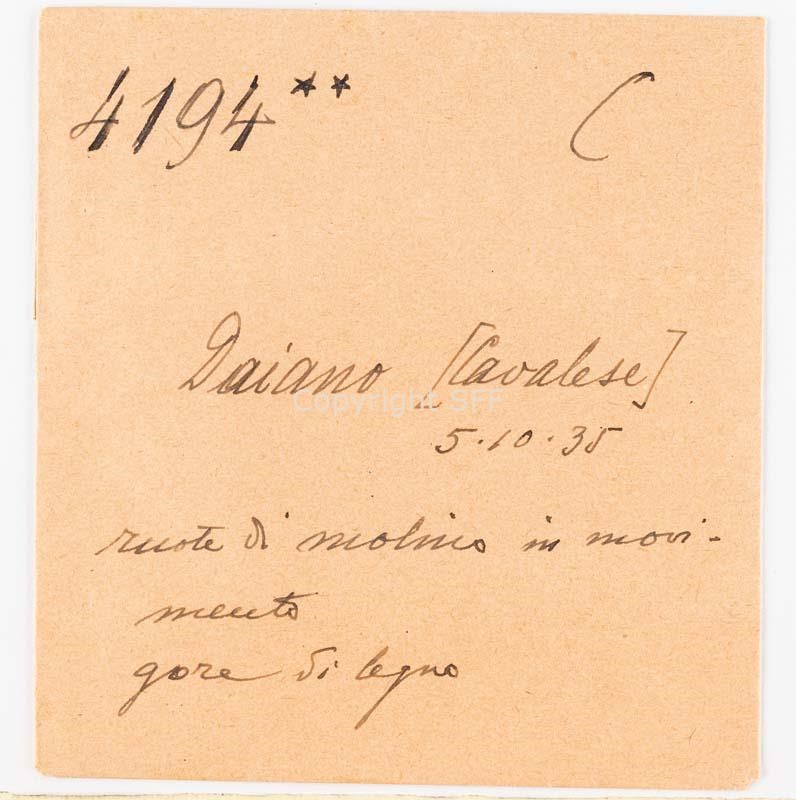 4194** C
Daiano [Cavalese]
Copyright SFF
5.10.35
ruote di molino in movi-
mento
gore di legno